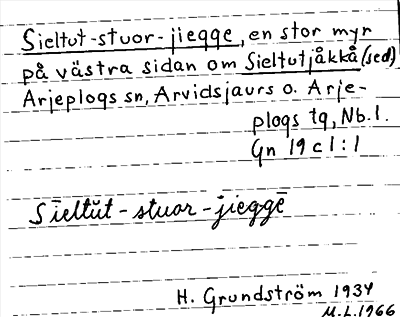 Sieltut-stuor-jiegge, en stor myr
på västra sidan om Sieltutjåkkå (sed)
Arjeplogs sn, Arvidsjaurs o. Arje-
plogs tg, Nb.l.
Gn 19 c 1 : 1
Sieltŭt - stuor - jieggē
H. Grundström 1934
M.L. 1966